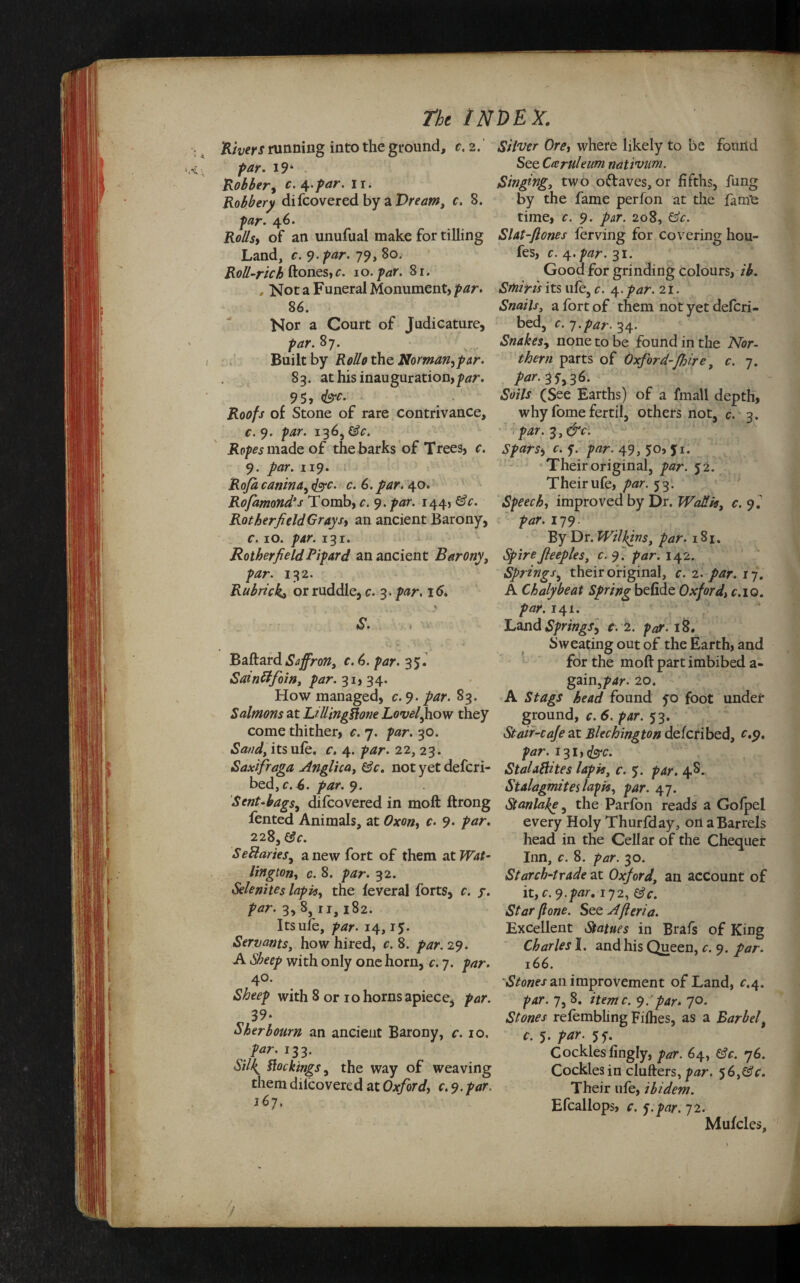 The INDEX.
Rivers running into the ground, c. 2.
par. 19.
Robber, c. 4. par. 11.
Robbery diſcovered by a Dream, c. 8.
par. 46.
Rolls, of an unuſual make for tilling
Land, c. 9. par. 79, 80.
Roll-rich ſtones, c. 10. par. 81.
Not a Funeral Monument, par.
86.
Nor a Court of Judicature,
par. 87.
Built by Rollo the Norman, par.
83. at his inauguration, par.
95, &c.
Roofs of Stone of rare contrivance,
c. 9. par. 136, &c.
Ropes made of the barks of Trees, c.
9. par. 119.
Roſa canina, &c. c. 6. par. 40.
Roſamond's Tomb, c. 9. par. 144, &c.
Rotherfield Grays, an ancient Barony,
c. 10. par. 131.
Rotherfield Pipard an ancient Barony,
par. 132.
Rubrick, or ruddle, c. 3. par. 16.
S.
Baſtard Saffron, c. 6. par. 35.
Sainctfoin, par. 31, 34.
How managed, c. 9. par. 83.
Salmons at Lillingſtone Lovel, how they
come thither, c. 7. par. 30.
Sand, its uſe. c. 4. par. 22, 23.
Saxifraga Anglica, &c. not yet deſcri-
bed, c. 6. par. 9.
Sent-bags, diſcovered in moſt ſtrong
ſented Animals, at Oxon, c. 9. par.
228, &c.
Sectaries, a new ſort of them at Wat-
lington, c. 8. par. 32.
Selenites lapis, the ſeveral ſorts, c. 5.
par. 3, 8, 11, 182.
Its uſe, par. 14, 15.
Servants, how hired, c. 8. par. 29.
A Sheep with only one horn, c. 7. par.
40.
Sheep with 8 or 10 horns apiece, par.
39.
Sherbourn an ancient Barony, c. 10.
par. 133.
Silk ſtockings, the way of weaving
them diſcovered at Oxford, c. 9. par.
167.
Silver Ore, where likely to be found
See Cæruleum nativum.
Singing, two octaves, or fifths, ſung
by the ſame perſon at the ſame
time, c. 9. par. 208, &c.
Slat-ſtones ſerving for covering hou-
ſes, c. 4. par. 31.
Good for grinding colours, ib.
Smiris its uſe, c. 4. par. 21.
Snails, a ſort of them not yet deſcri-
bed, c. 7. par. 34.
Snakes, none to be found in the Nor-
thern parts of Oxford-ſhire, c. 7.
par. 35, 36.
Soils (See Earths) of a ſmall depth,
why ſome fertil, others not, c. 3.
par. 3, &c.
Spars, c. 5. par. 49, 50, 51.
Their original, par. 52.
Their uſe, par. 53.
Speech, improved by Dr. Wallis, c. 9.
par. 179.
By Dr. Wilkins, par. 181.
Spire ſteeples, c. 9. par. 142.
Springs, their original, c. 2. par. 17.
A Chalybeat Spring beſide Oxford, c. 10.
par. 141.
Land Springs, c. 2. par. 18.
Sweating out of the Earth, and
for the moſt part imbibed a-
gain, par. 20.
A Stags head found 50 foot under
ground, c. 6. par. 53.
Stair-caſe at Blechington deſcribed, c. 9.
par. 131, &c.
Stalactites lapis, c. 5. par. 48.
Stalagmites lapis, par. 47.
Stanlake, the Parſon reads a Goſpel
every Holy Thurſday, on a Barrels
head in the Cellar of the Chequer
Inn, c. 8. par. 30.
Starch-trade at Oxford, an account of
it, c. 9. par. 172, &c.
Star ſtone. See Aſteria.
Excellent Statues in Braſs of King
Charles I. and his Queen, c. 9. par.
166.
Stones an improvement of Land, c. 4.
par. 7, 8. item c. 9. par. 70.
Stones reſembling Fiſhes, as a Barbel,
c. 5. par. 55.
Cockles ſingly, par. 64, &c. 76.
Cockles in cluſters, par. 56, &c.
Their uſe, ibidem.
Eſcallops, c. 5. par. 72.
Muſcles,